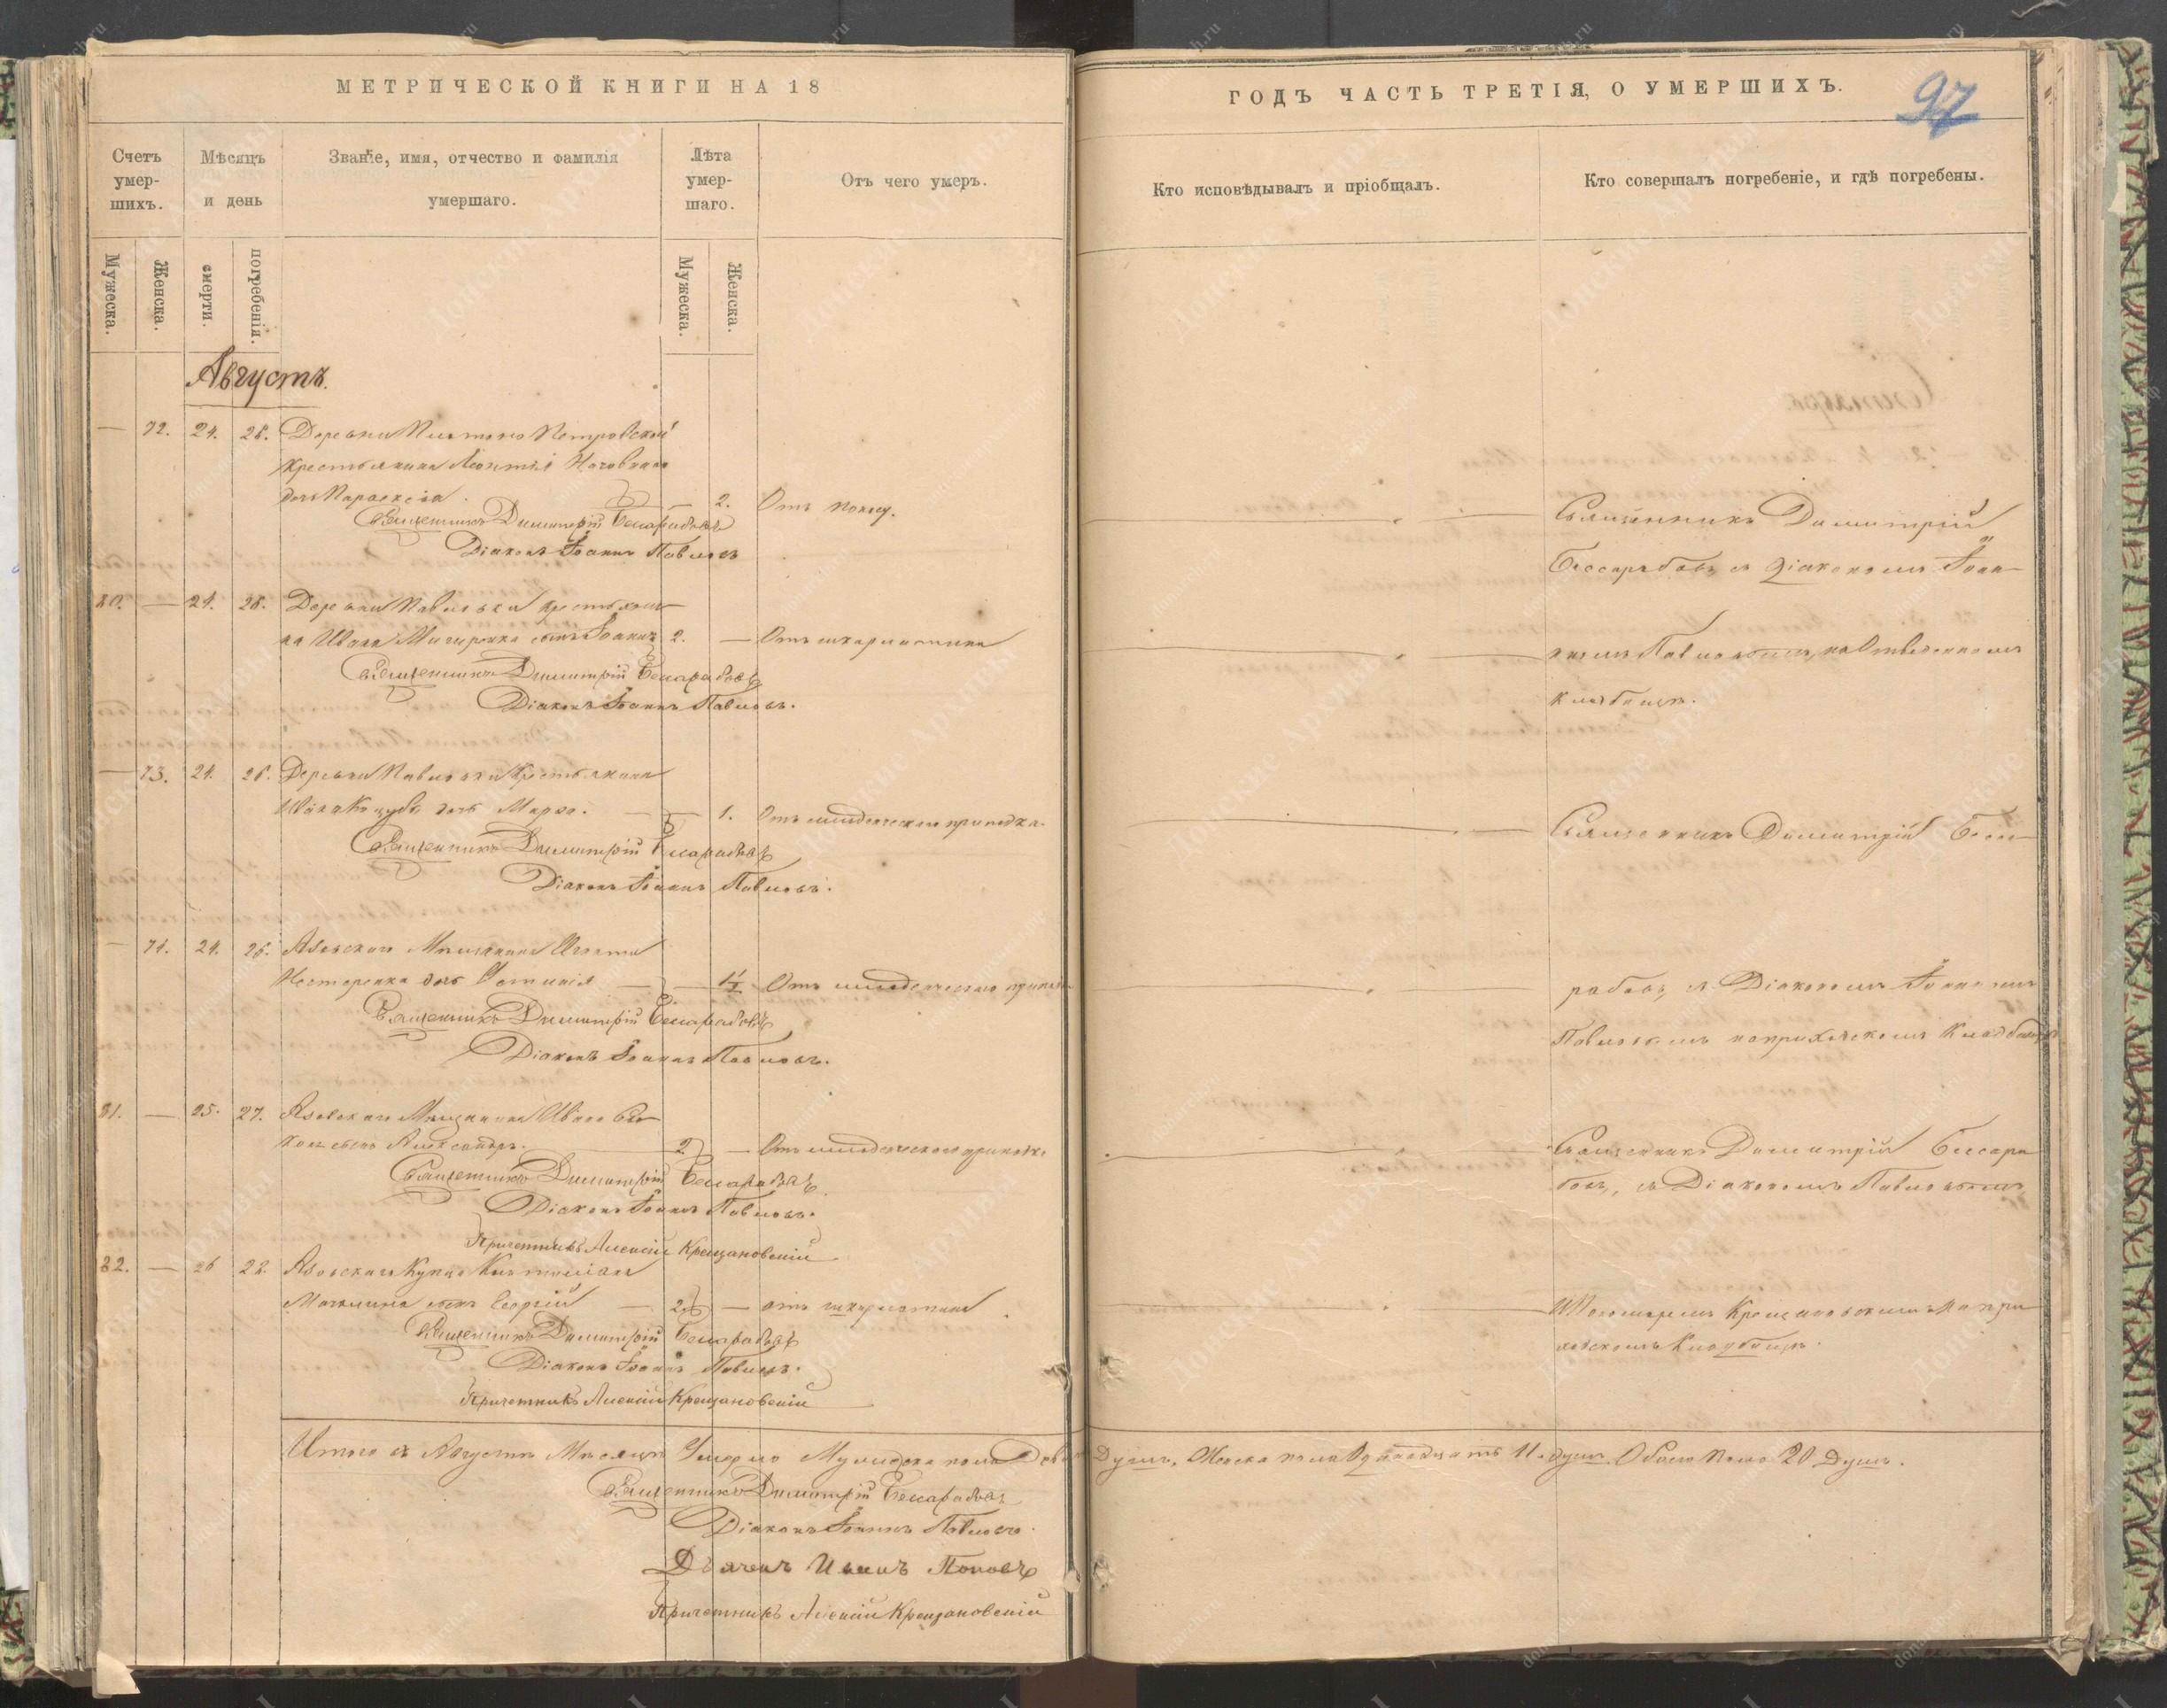 МЕТРИЧЕСКОЙ КНИГИ НА 18
ГОДЪ ЧАСТЬ ТРЕТІЯ, О УМЕРШИХЪ.
97
Счетъ умер-шихъ.
Мѣсяцъ и день
Званіе, имя, отчество и фамилія
умершаго.
Лѣта умер-шаго.
Отъ чего умеръ.
Кто исповѣдывалъ и пріобщалъ.
Кто совершалъ погребеніе, и гдѣ погребены.
Мужеска.
Женска.
смерти.
погребенія.
Мужеска.
Женска.
Августъ.
— 72. 24. 28. Деревни Петровской
крестьянина Леонтія
дочь Параскева. — 2. Отъ
Священникъ Димитрій Бессарабовъ
Діаконъ Іоаннъ Павловъ
Священникъ Димитрій
Бессарабовъ съ діакономъ Іоан-
80. — 24. 28. Деревни Павловки крестьяни-
на Ивана сынъ Іоаннъ 2. — Отъ скарлатины
Священникъ Димитрій Бессарабовъ
Діаконъ Іоаннъ Павловъ.
номъ Павловымъ, на
кладбищѣ.
— 73. 24. 26. Деревни Павловки крестьянина
Ивана дочь — 1. Отъ младенческаго припадка.
Священникъ Димитрій Бессарабовъ
Діаконъ Іоаннъ Павловъ.
Священникъ Димитрій Бесса-
— 74. 24. 26. Азовскаго Мѣщанина
Нестеренка дочь — Отъ младенческаго
Священникъ Димитрій Бессарабовъ
Діаконъ Іоаннъ Павловъ.
рабовъ, съ Діакономъ Іоанномъ
Павловымъ на приходскомъ кладбищѣ
81. — 25. 27. Азовскаго Мѣщанина Ивана
сынъ Александръ. 2 — Отъ младенческаго припадка
Священникъ Димитрій Бессарабовъ
Діаконъ Іоаннъ Павловъ.
Причетникъ Алексій Крещановскій
Священникъ Димитрій Бессара
бовъ, съ Діакономъ Павловымъ
82. — 26 28. Азовскаго Купца
сынъ Георгій — 2. — отъ скарлатины
Священникъ Димитрій Бессарабовъ
Діаконъ Іоаннъ Павловъ.
Причетникъ Алексій Крещановскій
Крещановскимъ на при
ходскомъ Кладбищѣ.
Итого въ Августѣ Мѣсяцѣ Умерло Мужеска пола Девять Душъ, Женска пола 11. душъ. Обоего пола 20 Душъ.
Священникъ Димитрій Бессарабовъ
Діаконъ Іоаннъ Павловъ.
Дьячекъ Поповъ
Причетникъ Алексій Крещановскій